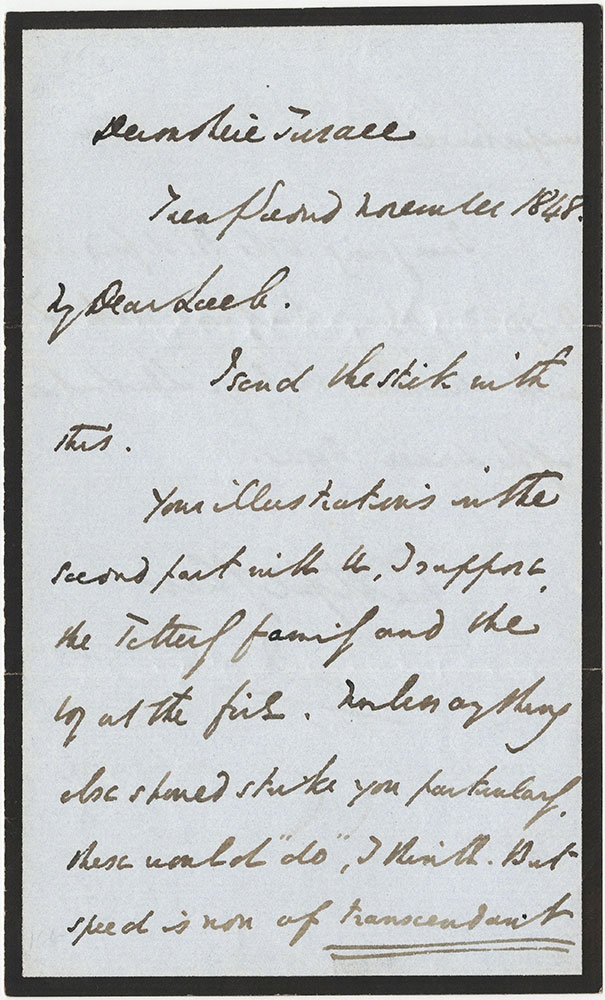 Devonshire Terrace
Twenty Second November 1848.
My Dear Leech.
I send the stick with
this.
Your illustrations in the
second part will be, I suppose,
the Tetterby family and the
boy at the fire. Unless anything
else should strike you particularly,
these would "do", I think. But
speed is now of transcendant